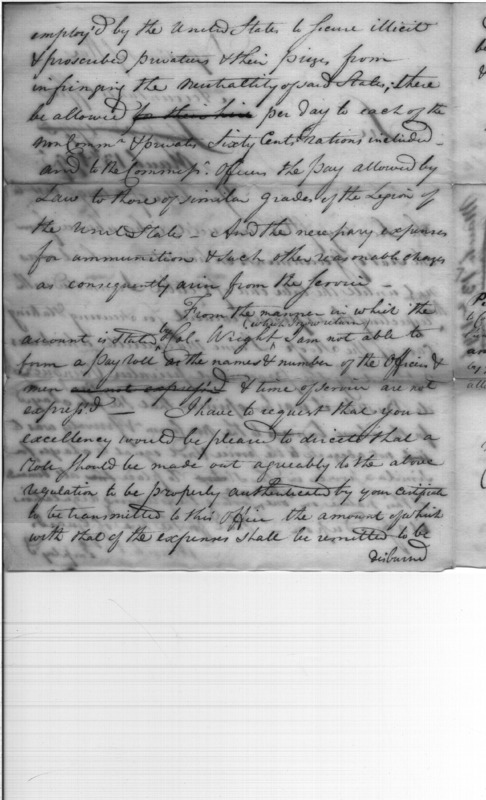 employ'd by the United States to secure illicit
& proscribed privateers & their prizes from
infringing the neutrality of said States, there
be allowed per day to each of the
non Commd. & privates Sixty Cents rations included —
and to the Commissd. Officers the pay allowed by
Law to those of similar grades of the Legion of
the United States — And the necessary expenses
for ammunition & such other reasonable charges
as consequently arise from the Service —
From the manner in which the
account is Stated by Col. Wright, which I now return I am not able to
form a pay Roll as the names & number of the Officers &
men are not express'd & time of service are not
express'd — I have to request that your
excellency would be pleased to direct that a
Role should be made out agreeably to the above
regulation to be properly authenticated by your Certificate
to be transmitted to this Office the amount of which
with that of the expenses shall be remitted to be
disbursed